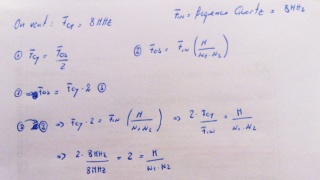 On veut : Fcy = 8 MHz
Fin = Fréquence Quartz = 8MHz
① Fcy = Fos / 2
② Fos = Fin ( M / N1·N2 )
① ⇒ Fos = Fcy · 2 ③
⇒ Fcy · 2 = Fin ( M / N1·N2 ) ⇒ 2·Fcy / Fin = M / N1·N2
⇒ 2 · 8MHz / 8MHz = 2 = M / N1·N2